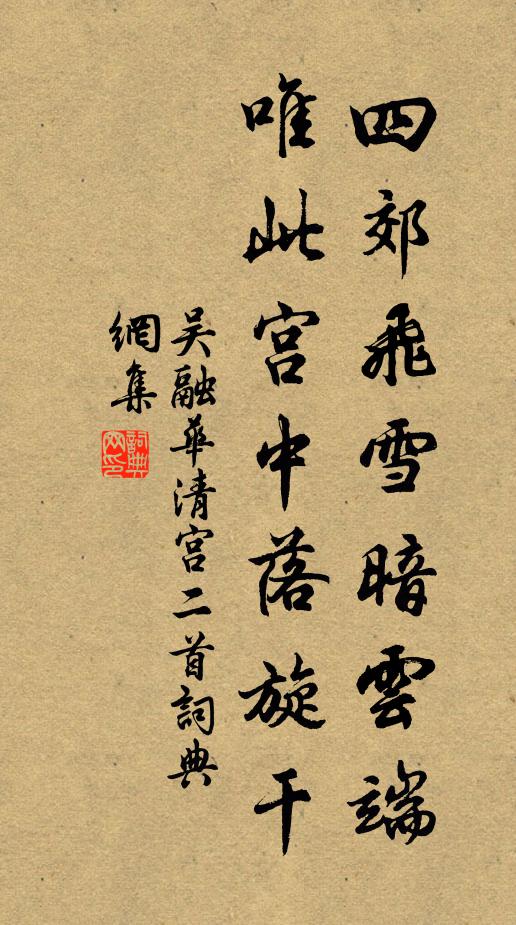 四郊飛雪暗雲端
唯此宫中落旋干
吴融華清宫二首詞典
網集
詞典網印